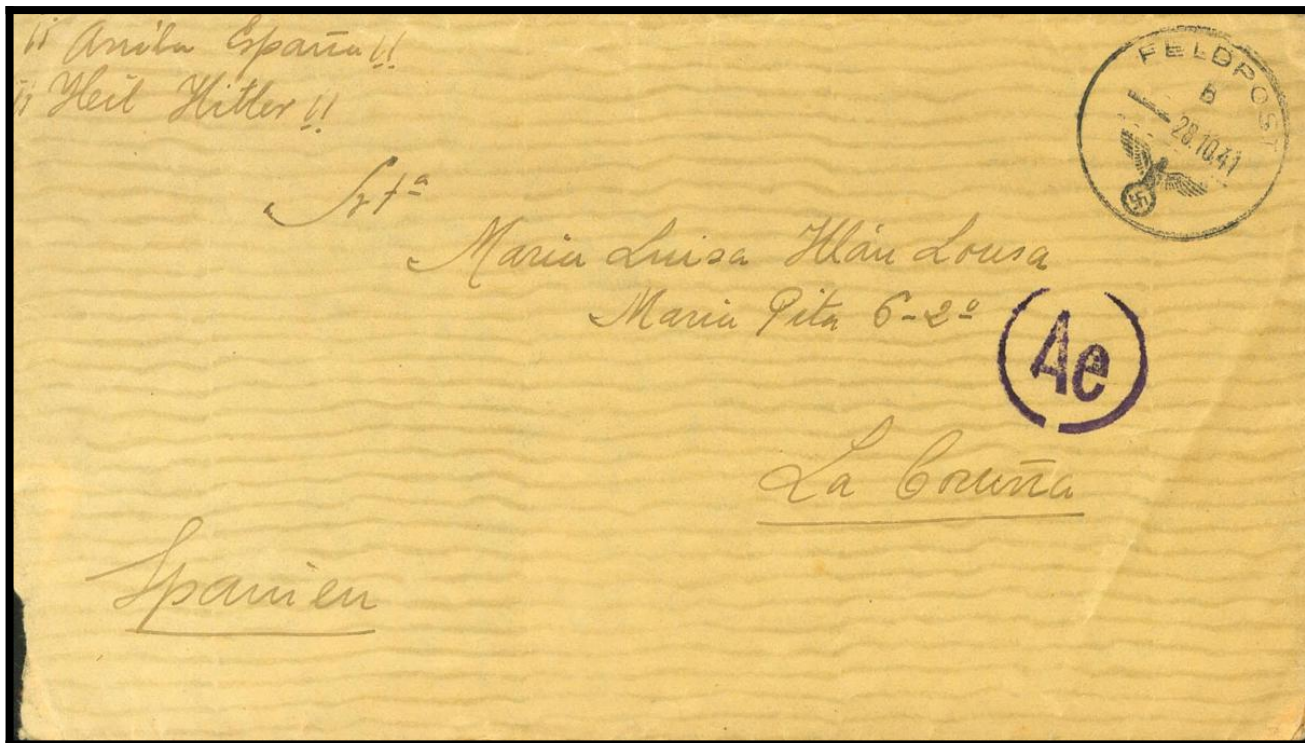 ¡¡ Arriba España!!
¡¡ Heil Hitler!!
FELDPOST
b
28.10.41
Srtª
Maria Luisa Lousa
Maria Pita 6-2º
Ae
La Coruña
Spanien